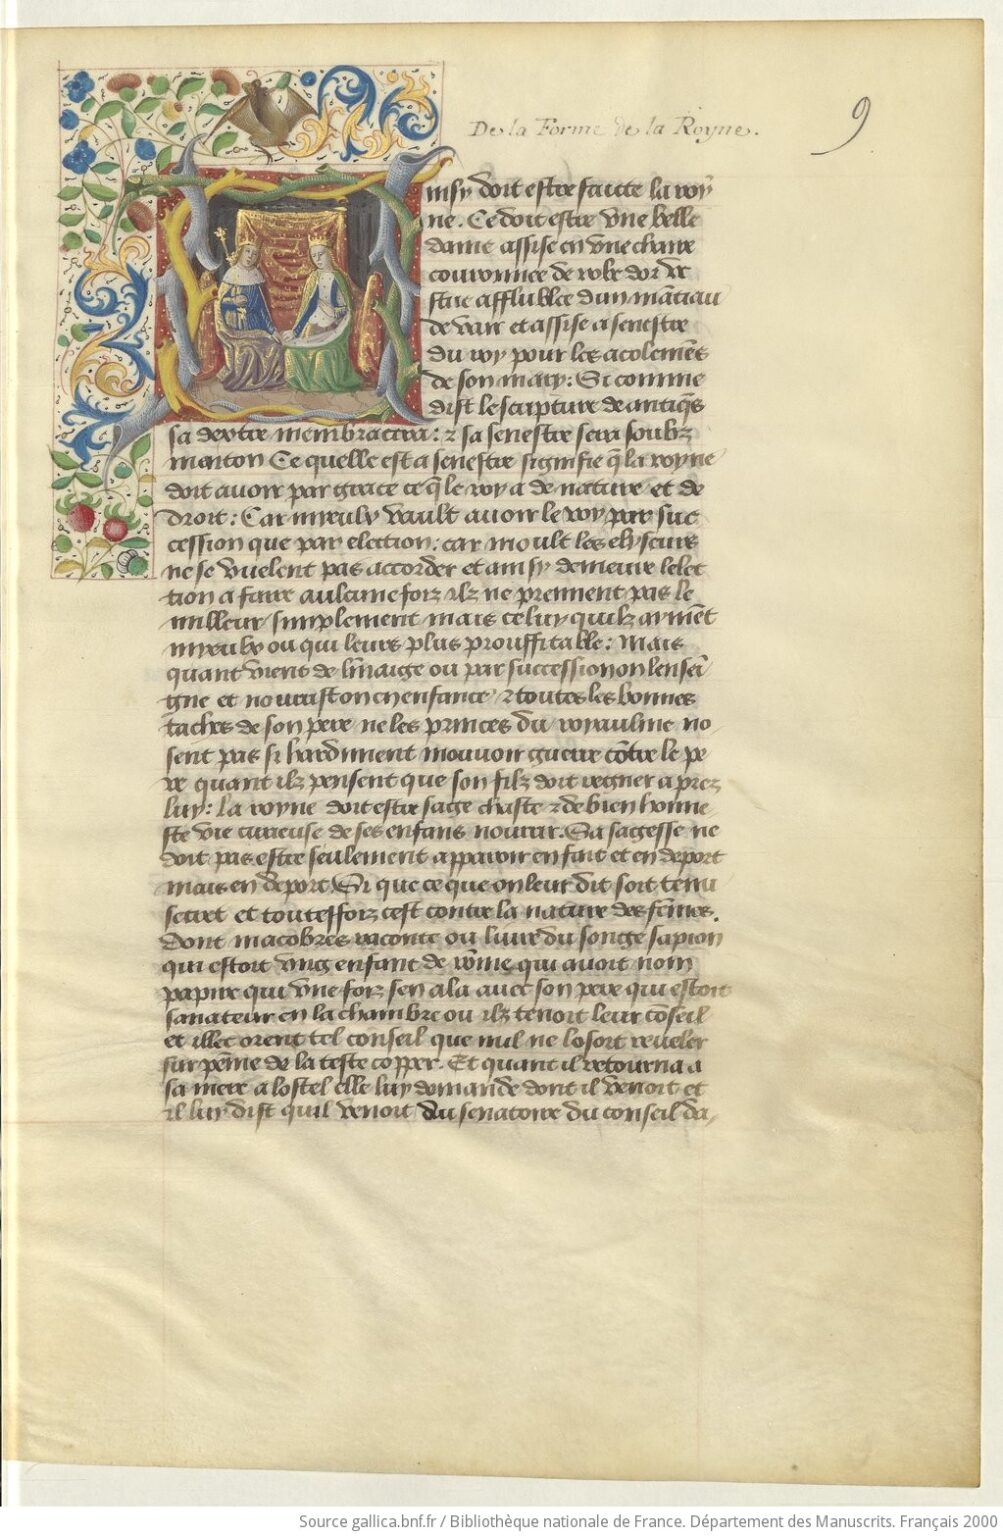 De la Forme de la Royne.
9
insy doit estre faicte la roy
ne. Ce doit estre vne belle
dame assise en vne chaire
couronnee de robe dor ve
stue affublee dun mātiau
de vair et assise a senestre
du roy pour les acolemēs
de son mary: Si comme
dist lescripture de antiq̄s
sa dextre membracera: ⁊ sa senestre sera soubz
menton Ce quelle est a senestre signifie q̄ la royne
doit auoir par grace ce q̄ le roy a de nature et de
droit: Car myeulx vault auoir le roy par suc
cession que par election: car moult les elyseurs
ne se vuelent pas accorder et ainsy demeure lelec
tion a faire aulcune foiz ilz ne prennent pas le
milleur simplement mais celuy quilz aymēt
myeulx ou qui leur est plus prouffitable: mais
quant vient de linaige ou par succession on lensei
gne et nourrist on en enfance ⁊ toutes les bonnes
taches de son pere ne les princes du royaulme no
sent pas si hardiment mouuoir guerre cōtre le pe
re quant ilz pensent que son filz doit regner aprez
luy: la royne doit estre sage chaste ⁊ de bien honne
ste vie curieuse de ses enfans nourrir. Sa sagesse ne
doit pas estre seulement apparoir en fait et en deport
mais en deport Si que ce que on leur dit soit tenu
secret et toutesfoiz cest contre la nature des fēmes.
Dont macobres raconte ou liure du songe sapion
qui estoit vng enfant de rōme qui auoit nom
papire qui vne foiz sen ala auec son pere qui estoit
sanateur en la chambre ou ilz tenoit leur cōseil
et illec orent tel conseil que nul ne losoit reueler
sur peine de la teste copper. Et quant il retourna a
sa mere a lostel elle luy demande dont il venoit et
il luy dist quil venoit du senatoire du conseil da
Source gallica.bnf.fr / Bibliothèque nationale de France. Département des Manuscrits. Français 2000